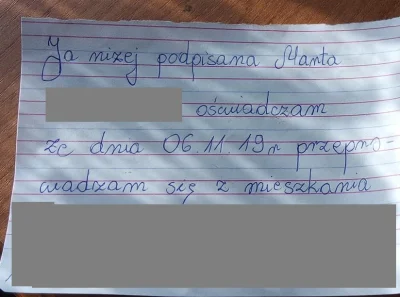 Ja niżej podpisana Marta
oświadczam
że dnia 06.11.19r przepro-
wadzam się z mieszkania